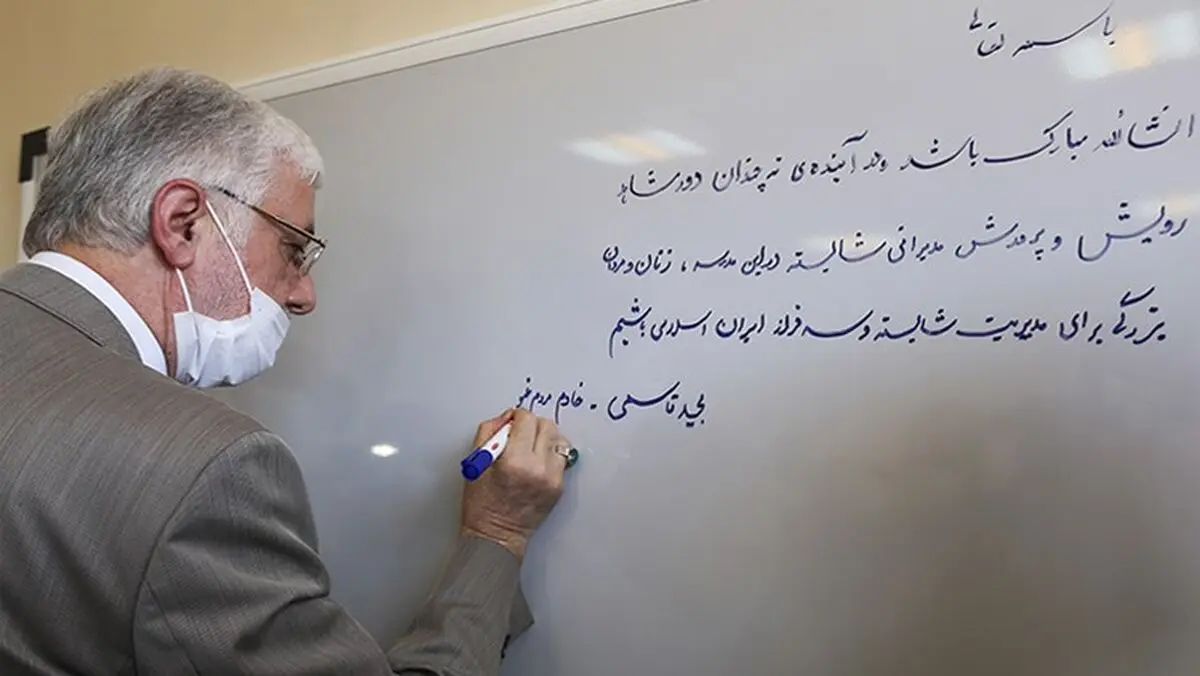 باسمه تعالی
انشاالله مبارک باشد و در آینده‌ی نه چندان دور شاهد
رویش و پرورش مدیرانی شایسته در این مدرسه ، زنان و مردان
بزرگی برای مدیریت شایسته و سرفراز ایران اسلامی باشیم
مجید قاسمی - خادم مردم